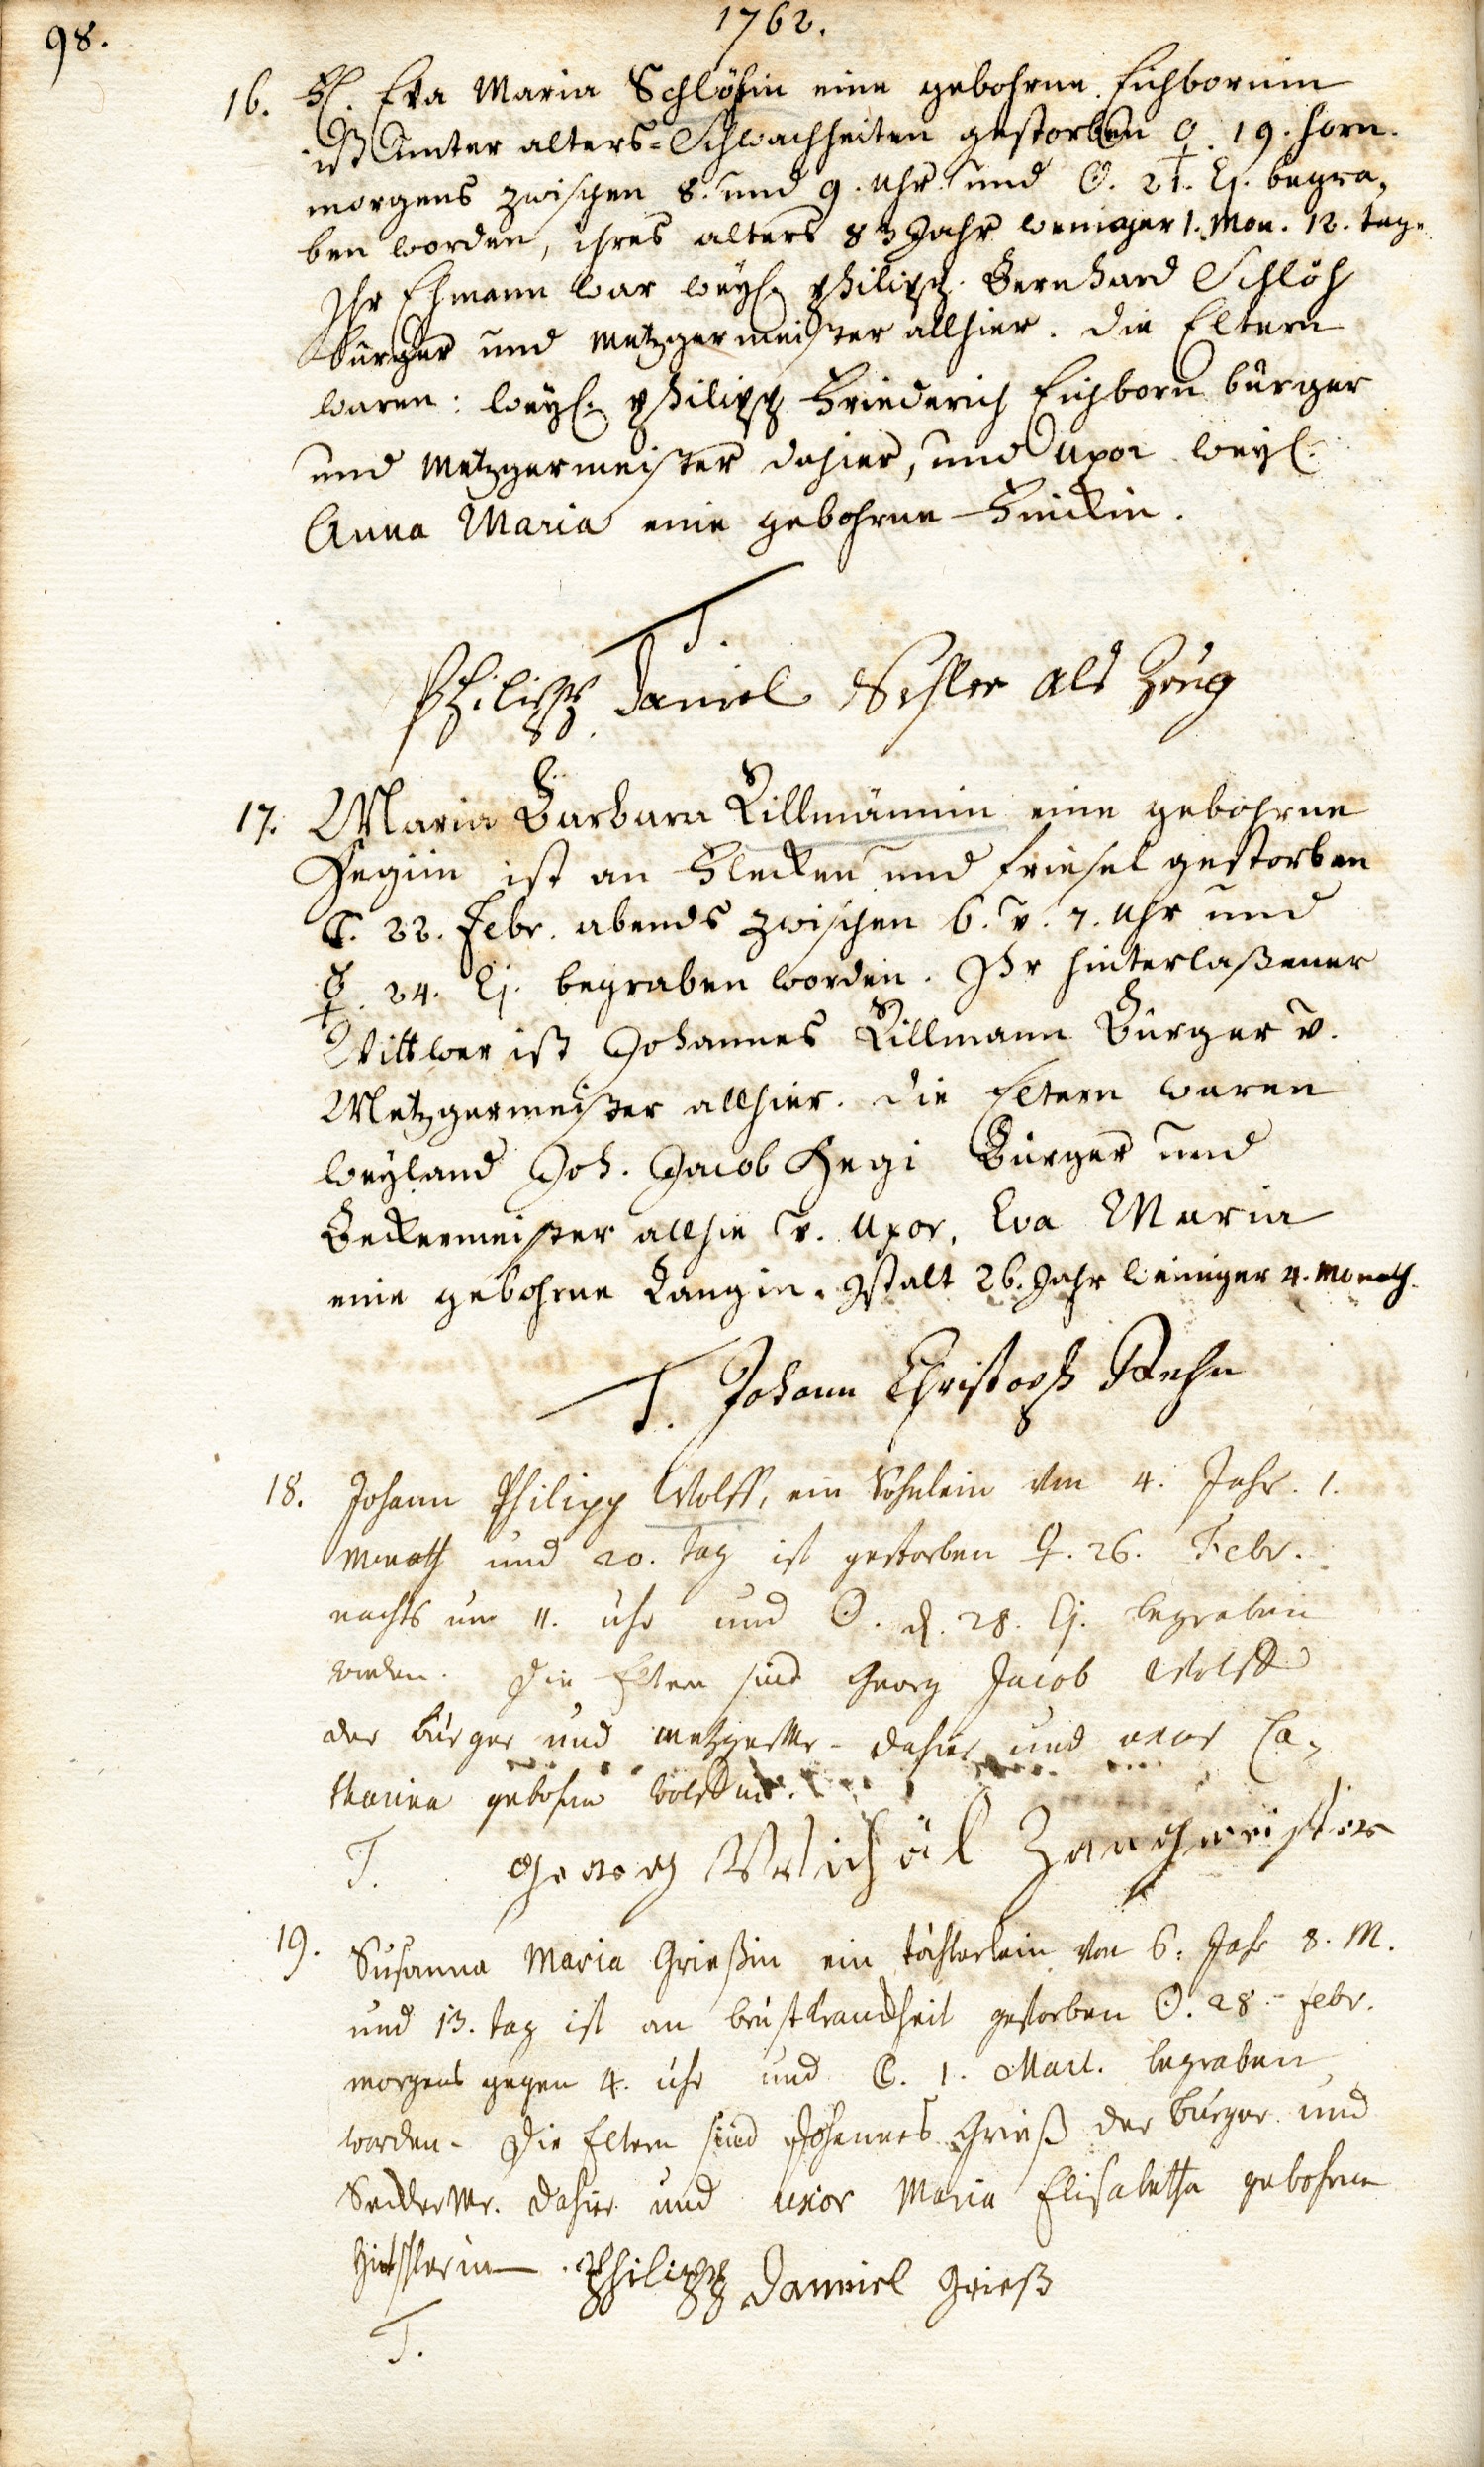 98.
1762.
16. Fr. Eva Maria Schlöhin eine gebohrne Eichbornin
ist unter alters-Schwachheiten gestorben ♀. 19. Horn.
morgens zwischen 8. und 9. Uhr. und ☉. 21. Ej. begra,
ben worden, ihres alters 83 Jahr weniger 1. Mon. 12. tag.
Ihr Ehmann war weyl. Philipp Bernhard Schlöh
burger und metzgermeister allhier. die Eltern
waren: weyl. Philipp Friederich Eichborn bürger
und metzgermeister dahier, und uxor weyl.
Anna Maria eine gebohrne
T.
Philipp Daniel als Zeug
17. Maria Barbara Killmännin eine gebohrne
Hegiin ist an Flecken und friesel gestorben
☾. 22. Febr. abends zwischen 6. u. 7. Uhr und
☿. 24. Ej. begraben worden. Ihr hinterlaßener
Wittwer ist Johannes Killmann Bürger u.
Metzgermeister allhier. die Eltern waren
weyland Joh. Jacob Hegi Bürger und
Beckermeister allhie u. uxor, Eva Maria
eine gebohrne Langin. Ist alt 26. Jahr weniger 4. Monath.
T. Johann Christoph
18. Johann Philipp Wolff, ein Söhnlein von 4. Jahr. 1.
Monath und 20. tag ist gestorben ♀. 26. Febr.
nachts um 11. Uhr und ☉. d. 28. Ej. begraben
worden. Die Eltern sind Georg Jacob Wolff
der bürger und metzgerMr. dahier und uxor Ca,
tharina gebohrne Wolffin.
T. Georg Michäl Zeuchmeister
19. Susanna Maria Grießin ein töchterlein von 6. Jahr 8. M.
und 13. tag ist an brustkranckheit gestorben ☉. 28. febr.
morgens gegen 4. Uhr und ☾. 1. Mart. begraben
worden. Die Eltern sind Johannes Grieß der bürger und
Mr. dahier und uxor Maria Elisabetha gebohrne
Philipp Danniel Grieß
T.